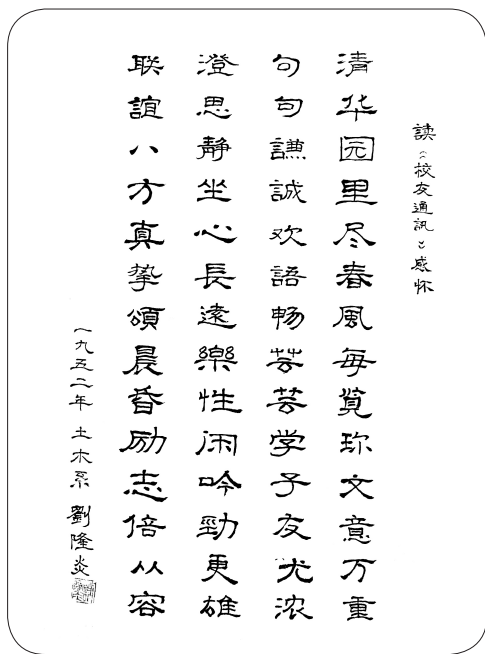 读《校友通訊》感怀
清华园里尽春風每覧珎文意万重
句句謙誠欢語畅芸芸学子友尤浓
澄思靜坐心長遠樂性闲吟勁更雄
联誼八方真挚頌晨昏励志倍从容
一九五二年 土木系 劉隆炎